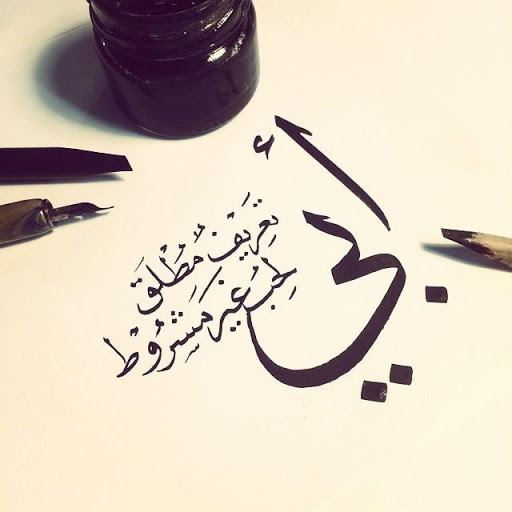 أبي
تعريف مُطْلَق
لِحُب غير مَشْرُوط